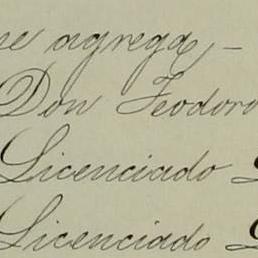 se agrega,—
Don Teodoro
Licenciado
Licenciado